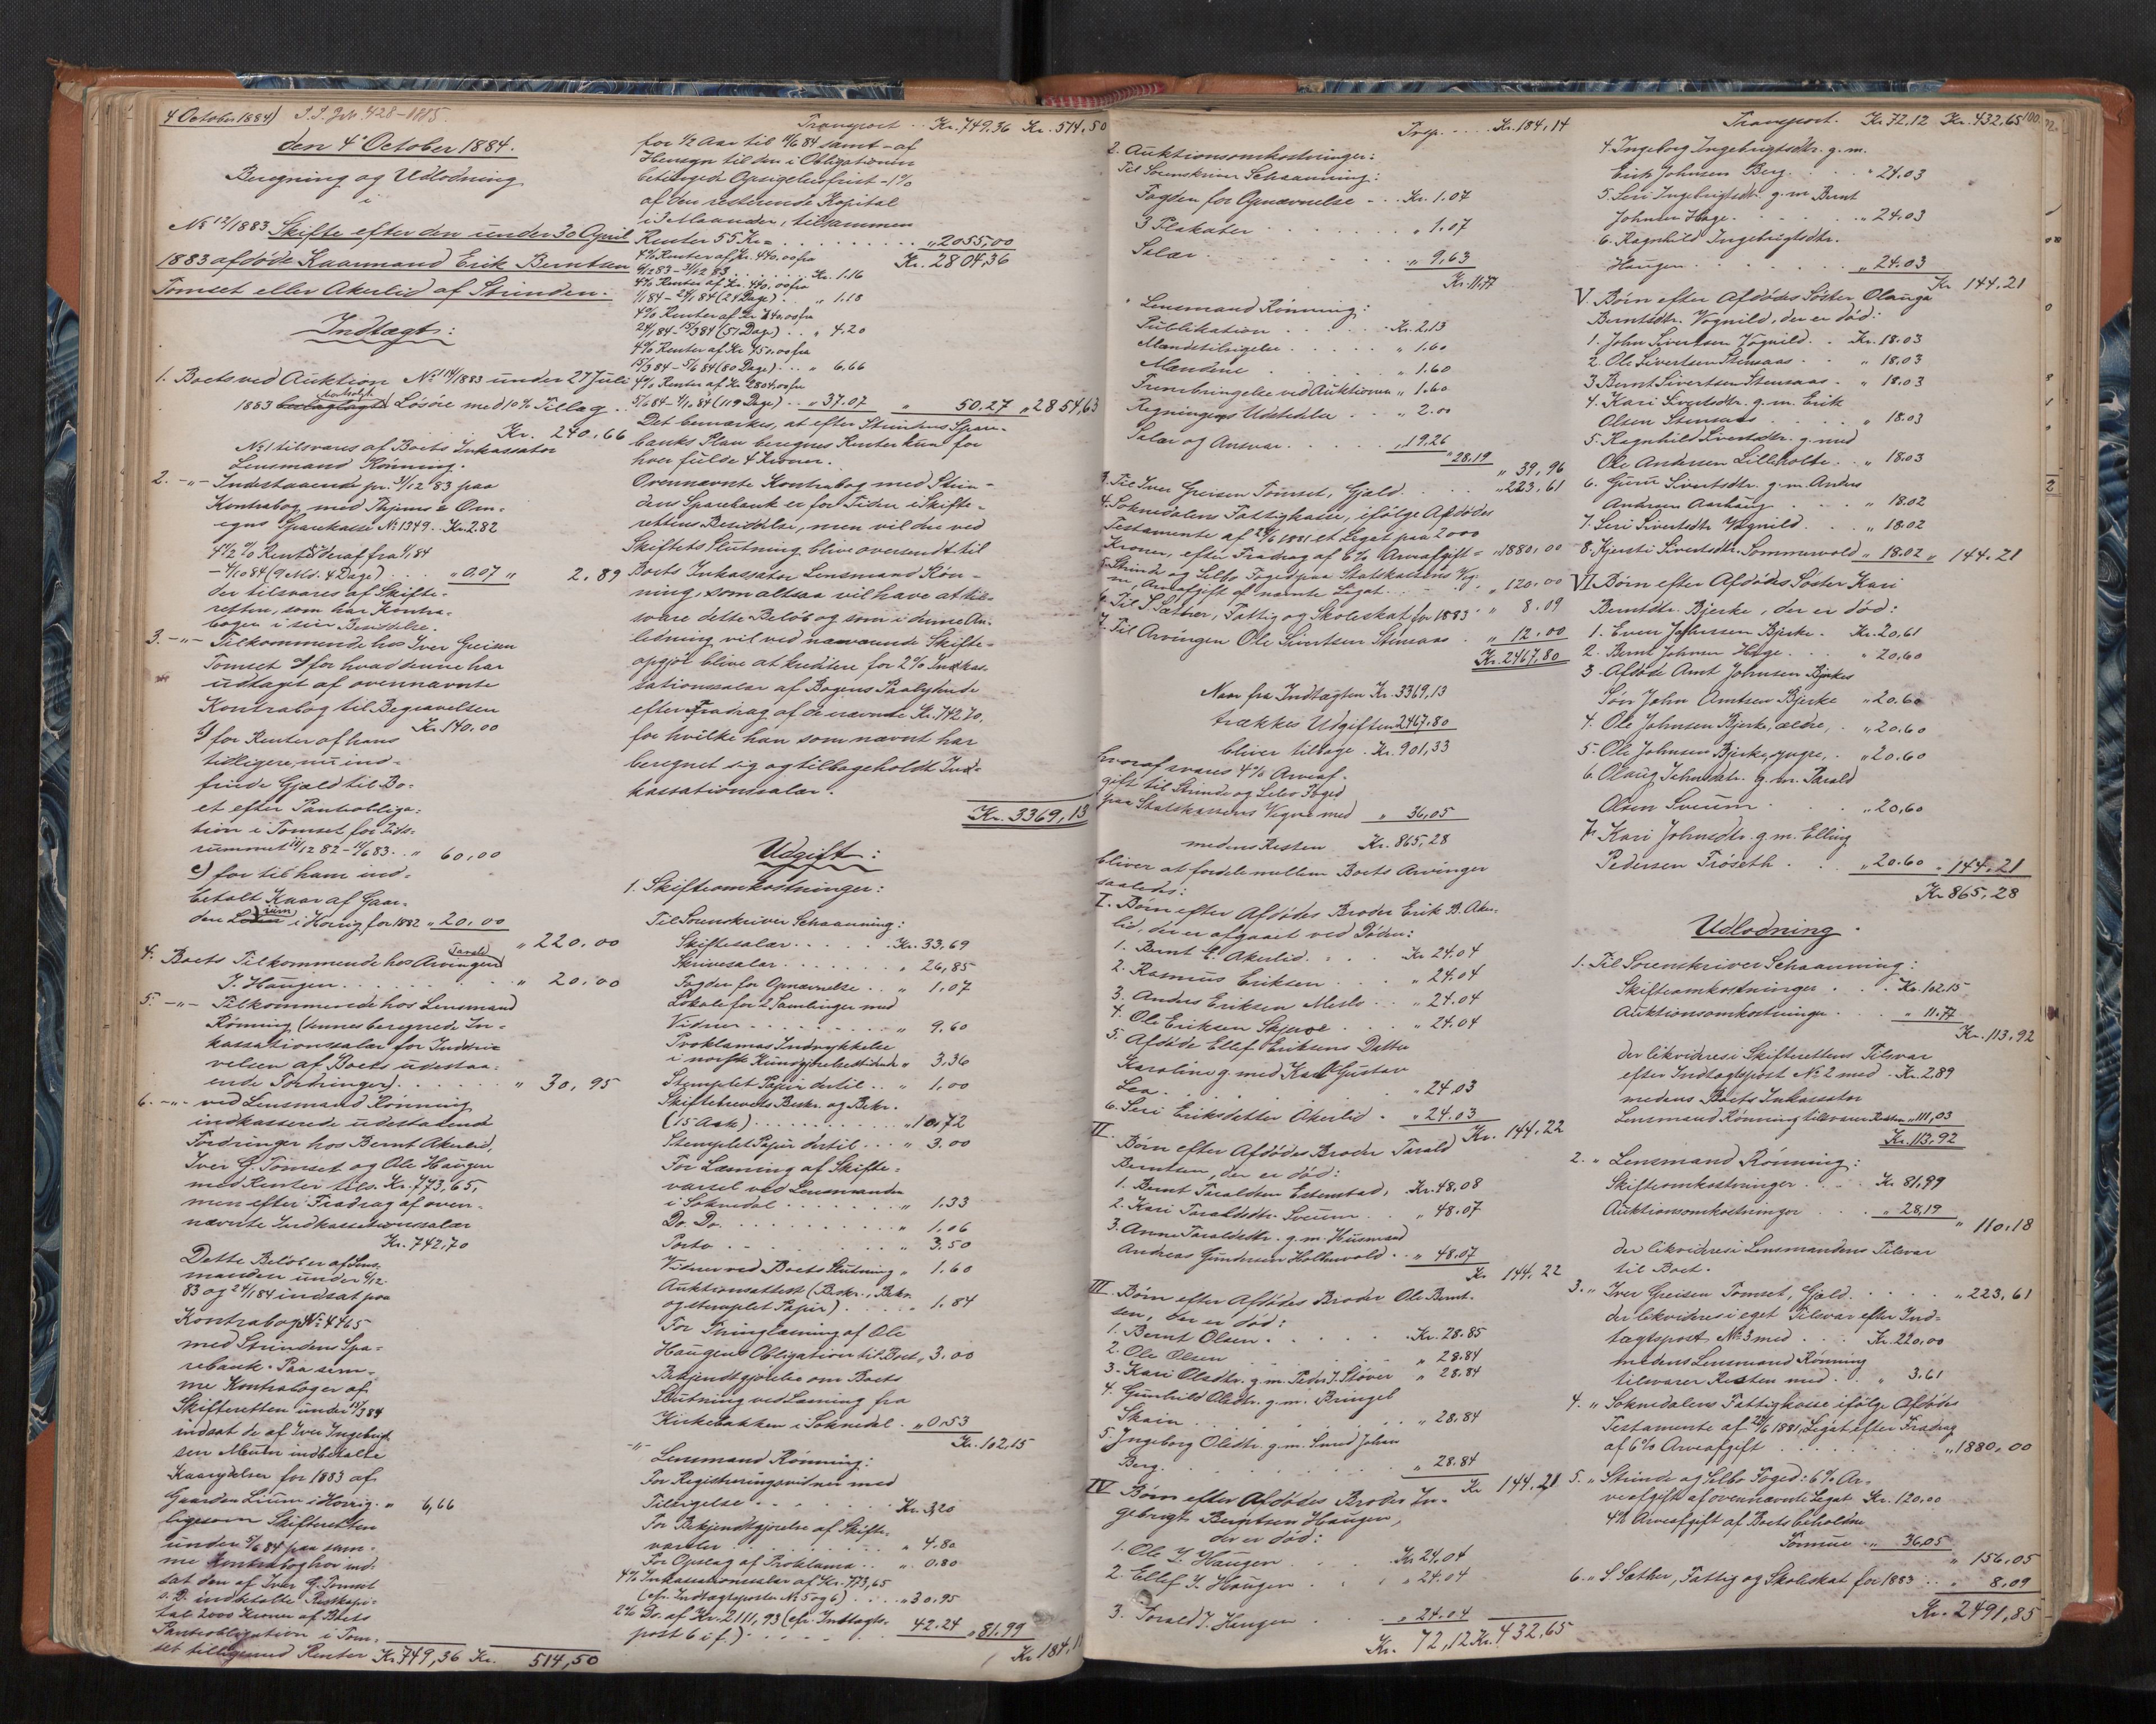 4 October 1884)
den 4de October 1884.
Beregning og Udlodning
i
No 12/1883 Skifte efter den under 30 April
1883 afdøde Kaarmand Erik Berntsen
Tomset eller Akerlid af Strinden.
Indtægt:
1. Boets ved Auktion No 14/1883 under 27 Juli
1883 bortsolgte Løsøre med 10% Tillæg
Kr. 240.66
No 1 tilsvares af Boets Inkassator
Lensmand Rønning.
2. -"- Indestaaende pr. 31/12 83 paa
Kontrabog med Thjems & Om-
egns Sparekasse No 1349. Kr. 2.82
4 1/2 % Renter deraf fra 1/1 84
- 4/10 84 (9 Md. 4 Dage) . . . " 0.07 " 2.89
der tilsvares af Skifte-
retten, som har Kontra-
bogen i sin Besiddelse.
3. -"- Tilkommende hos Iver Greisen
Tomset a) for hvad denne har
udtaget af ovennævnte
Kontrabog til Begravelsen
Kr. 140.00
b) for Renter af hans
tidligere, nu ind-
friede Gjæld til Bo-
et efter Panteobliga-
tion i Tomset for Tids-
rummet 11/12 82 - 11/6 83. . " 60,00
c) for til ham ind-
betalt Kaar af Gaar-
den Lium i Horrig for 1882 " 20,00
" 220.00
4. Boets Tilkommende hos Arvingen Tarald
J. Haugen . . . " 20.00
5. -"- Tilkommende hos Lensmand
Rønning (dennes beregnede In-
kassationssalær for Inddri-
velsen af Boets udestaa-
ende Fordringer) . . . " 30,95
6. -"- ved Lensmand Rønning
indkasserede udestaaende
Fordringer hos Bernt Akerlid,
Iver G. Tomset og Ole Haugen
med Renter tils. Kr. 773,65,
men efter Fradrag af oven-
nævnte Indkassationssalær
Kr. 742,70
Dette Beløb er af Lens-
manden under 6/12
83 og 24/1 84 indsat paa
Kontrabog No 4465
med Strindens Spa-
rebank. Paa sam-
me Kontrabog er af
Skifteretten under 15/3 84
indsat de af Iver Ingebrigt-
sen indbetalte
Kaarydelser for 1883 af
Gaarden Lium i Horrig. " 6,66
ligesom Skifteretten
under 5/6 84 paa sam-
me Kontrabog har ind-
sat den af Iver G. Tomset
s. D. indbetalte Restkapi-
tal 2000 Kroner af Boets
Panteobligation i Tom-
set tilligemed Renter Kr. 749,36 Kr. 514,50
Transport . . Kr. 749.36 Kr. 514,50
for 1/2 Aar til 11/6 84 samt - af
Hensyn til den i Obligationen
betingede Opsigelsesfrist - 1%
af den resterende Kapital
i 3 Maaneder, tilsammen
Renter 55 Kr = . . . " 2055,00
Kr. 2804,36
4% Renter af Kr. 440.00 fra
6/12 83 - 31/12 83 . . . Kr. 1.16
4% Renter af Kr. 440.00 fra
1/1 84 - 24/1 84 (24 Dage) . . " 1.18
4% Renter af Kr 740.00 fra
24/1 84 - 15/3 84 (51 Dage) . . " 4.20
4% Renter af Kr 750.00 fra
15/3 84 - 5/6 84 (80 Dage) . . " 6,66
4% Renter af Kr. 2804,00 fra
5/6 84 - 4/10 84 (119 Dage) . . " 37.07 " 50.27 " 2854,63
Det bemærkes, at efter Strindens Spare-
banks Plan beregnes Renter kun for
hver fulde 4 Kroner.
Ovennævnte Kontrabog med Strin-
dens Sparebank er for Tiden i Skifte-
rettens Besiddelse, men vil dee ved
Skiftets Slutning blive oversendt til
Boets Inkassator Lensmand Røn-
ning, som altsaa vil have at til-
svare dette Beløb og som i denne An-
ledning vil ved nærværende Skifte-
opgjør blive at kreditere for 2% Inkas-
sationssalær af Bogens Paalydende
efter Fradrag af de nævnte Kr. 742.70,
for hvilke han som nævnt har
beregnet sig og tilbageholdt Ind-
kassationssalær.
Kr. 3369,13
Udgift:
1. Skifteomkostninger:
Til Sorenskriver Schaanning:
Skiftesalær . . . Kr. 33.69
Skrivesalær . . . " 26,85
Fogden for Opnævnelse . . " 1.07
Lokale for 2 Samlinger med
Vidner . . . " 9.60
Proklamas Indrykkelse
i norsk Kundgjørelsestidende " 3.36
Stemplet Papir dertil . . " 1.00
Skiftebrevets Beskr. og Bekr.
(15 Ark) . . . " 10.72
Stemplet Papir dertil . . " 3.00
For Læsning af Skifte-
varsel ved Lensmanden
i Soknedal . . . " 1.33
Do. Do. . . . " 1.06
Porto . . . " 3.50
Vidner ved Boets Slutning " 1.60
Auktionsattest (Beskr., Bekr.
og stemplet Papir) . . " 1.84
For Thinglæsning af Ole
Haugens Obligation til Boet " 3.00
Bekjendtgjørelse om Boets
Slutning ved Læsning fra
Kirkebakken i Soknedal . " 0.53
Kr. 102.15
-"- Lensmand Rønning:
For Registreringsvidner med
Tilsigelse . . . Kr. 3,20
For Bekjendtgjørelse af Skifte-
varsler . . . " 4.80
For Opslag af Proklama . . " 0.80
4% Inkassationssalær af Kr. 773,65
(cfr. Indtægtsposter No 5 og 6) . . " 30.95
2% Do. af Kr. 2111,93 (cfr. Indtægts-
post 6 i f.) . . . 42.24 " 81.99
Trsp. . . . Kr. 184,14
2. Auktionsomkostninger:
Til Sorenskriver Schaanning:
Fogden for Opnævnelse . . Kr. 1.07
3 Plakater . . . " 1.07
Salær . . . " 9,63
Kr. 11.77
" Lensmand Rønning:
Publikation . . . Kr. 2.13
Mændstilsigelse . . . " 1.60
Mændene . . . " 1.60
Frembringelse ved Auktionen " 1.60
Regningens Udstedelse . . " 2.00
Salær og Ansvar . . . " 19.26
" 28.19
" 39,96
3. Til Iver Greisen Tomset, Gjæld . . . " 223,61
4. Soknedalens Fattigkasse, ifølge Afdødes
Testamente af 28/6 1881 et Legat paa 2000
Kroner, efter Fradrag af 6% Arveafgift = " 1880,00
5. Strinde og Selbo Foged paa Statskassens Veg-
ne, Arveafgift af nævnte Legat . . . " 120.00
6. Til S. Sæther, Fattig og Skoleskat for 1883 . " 8.09
7. Til Arvingen Ole Sivertsen Stensaas . . " 12.00
Kr. 2467,80
Naar fra Indtægten Kr. 3369,13
trækkes Udgiften " 2467,80
bliver tilbage . Kr. 901,33
hvoraf svares 4% Arveaf-
gift til Strinde og Selbo Foged
paa Statskassens Vegne med " 36,05
medens Resten Kr. 865,28
bliver at fordele mellem Boets Arvinger
saaledes:
I. Børn efter Afdødes Broder Erik B. Aker-
lid, der er afgaaet ved Døden:
1. Bernt E. Akerlid . . . Kr 24.04
2. Rasmus Eriksen . . . " 24.04
3. Anders Eriksen . . " 24.04
4. Ole Eriksen Skjerve . . " 24.04
5. Afdøde Ellef Eriksens Datter
Karoline g. med Karl Gustav
Lea . . . " 24.03
6. Seri Eriksdatter Akerlid . " 24.03
Kr. 144.22
II. Børn efter Afdødes Broder Tarald
Berntsen, der er død:
1. Bernt Taraldsen Estenstad, Kr. 48.08
2. Kari Taraldsdtr. Sveum . . " 48.07
3. Anne Taraldsdtr. g. m. Husmand
Andreas Gundersen Holtevold . . " 48.07
Kr 144,22
III. Børn efter Afdødes Broder Ole Bernt-
sen, der er død:
1. Bernt Olsen . . . Kr. 28.85
2. Ole Olsen " 28.84
3. Kari Olsdtr. g. m. Peder J. Støver " 28.84
4. Gunhild Olsdtr. g. m. Bringel
Skain . . . " 28,84
5. Ingeborg Olsdtr. g. m. Smed Johan
Berg . . . " 28.84
Kr 144.21
IV. Børn efter Afdødes Broder In-
gebrigt Berntsen Haugen,
der er død:
1. Ole I. Haugen . . . Kr 24.04
2. Ellef I. Haugen . . . " 24.04
3. Torald I. Haugen . . . " 24.04
Kr. 72,12 Kr. 432,65
100.
Transport. Kr. 72,12 Kr. 432,65
4. Ingeborg Ingebrigtsdtr. g. m.
Erik Johnsen Berg . . . " 24.03
5. Seri Ingebrigtsdtr. g. m. Bernt
Johnsen Hage . . . " 24.03
6. Ragnhild Ingebrigtsdtr.
Haugen . . . " 24.03
Kr 144,21
V. Børn efter Afdødes Søster Olauga
Berntsdtr. Vognild, der er død:
1. John Sivertsen Vognild . . Kr. 18.03
2. Ole Sivertsen Stensaas . . " 18.03
3. Bernt Sivertsen Stensaas . " 18.03
4. Kari Sivertsdtr. g. m. Erik
Olsen Stensaas . . . " 18.03
5. Ragnhild Sivertsdtr. g. med
Ole Andersen Lilleholte . . " 18.03
6. Guru Sivertsdtr. g. m. Anders
Andersen Aarhaug . . . " 18.02
7. Seri Sivertsdtr Vognild . . " 18.02
8. Kjersti Sivertsdtr. Sommervold " 18.02 " 144,21
VI. Børn efter Afdødes Søster Kari
Berntsdtr. Bjerke, der er død:
1. Even Johnsen Bjerke . Kr. 20,61
2. Bernt Johnsen Hage . . . " 20.60
3. Afdøde Arnt Johnsen Bjerkes
Søn John Arntsen Bjerke " 20.60
4. Ole Johnsen Bjerke, ældre, . " 20.60
5. Ole Johnsen Bjerke, yngre, . " 20.60
6. Olaug Johnsdtr. g. m. Tarald
Olsen Sveum . . . " 20,60
7. Kari Johnsdtr. g. m. Elling
Pedersen Frøseth . . . " 20.60 " 144.21
Kr. 865,28
Udlodning.
1. Til Sorenskriver Schaanning:
Skifteomkostninger . . . Kr. 102.15
Auktionsomkostninger . . " 11.77
Kr. 113,92
der likvideres i Skifterettens Tilsvar
efter Indtægtspost No 2 med . Kr. 2.89
medens Boets Inkassator
Lensmand Rønning tilsvarer Resten " 111,03
Kr. 113,92
2. " Lensmand Rønning:
Skifteomkostninger . . . Kr 81,99
Auktionsomkostninger . . . " 28,19
" 110.18
der likvideres i Lensmandens Tilsvar
til Boet.
3. " Iver Greisen Tomset, Gjæld . . . " 223,61
der likvideres i eget Tilsvar efter Ind-
tægtspost No 3 med . . . Kr. 220,00
medens Lensmand Rønning
tilsvarer Resten med . . " 3.61
4. " Soknedalens Fattigkasse ifølge Afdødes
Testamente af 28/6 1881, Legat efter Fradrag
af 6% Arveafgift . . . " 1880,00
5. " Strinde og Selbo Foged: 6% Ar-
veafgift af ovennævnte Legat Kr. 120,00
4% Arveafgift af Boets beholdne
Formue . . " 36,05
" 156,05
6. " S. Sæther, Fattig og Skoleskat for 1883 . . " 8,09
Kr. 2491,85